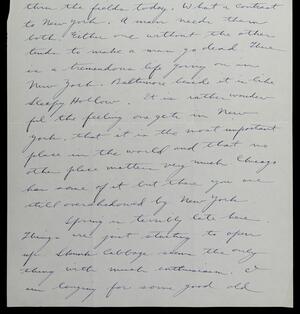 thru the fields today. What a contrast
to New York. A man needs them
both. Either one without the other
tends to make a man go dead. There
is a tremendous life going on in
New York. Baltimore beside it is like
Sleepy Hollow. It is rather wonder
ful the feeling one gets in New
York, that it is the most important
place in the world and that no
other place matters very much. Chicago
has some of it but there you are
still overshadowed by New York
Spring is terribly late here.
Things are just starting to open
up. Skunk Cabbage seem the only
thing with much enthusiasm. I
am longing for some good old